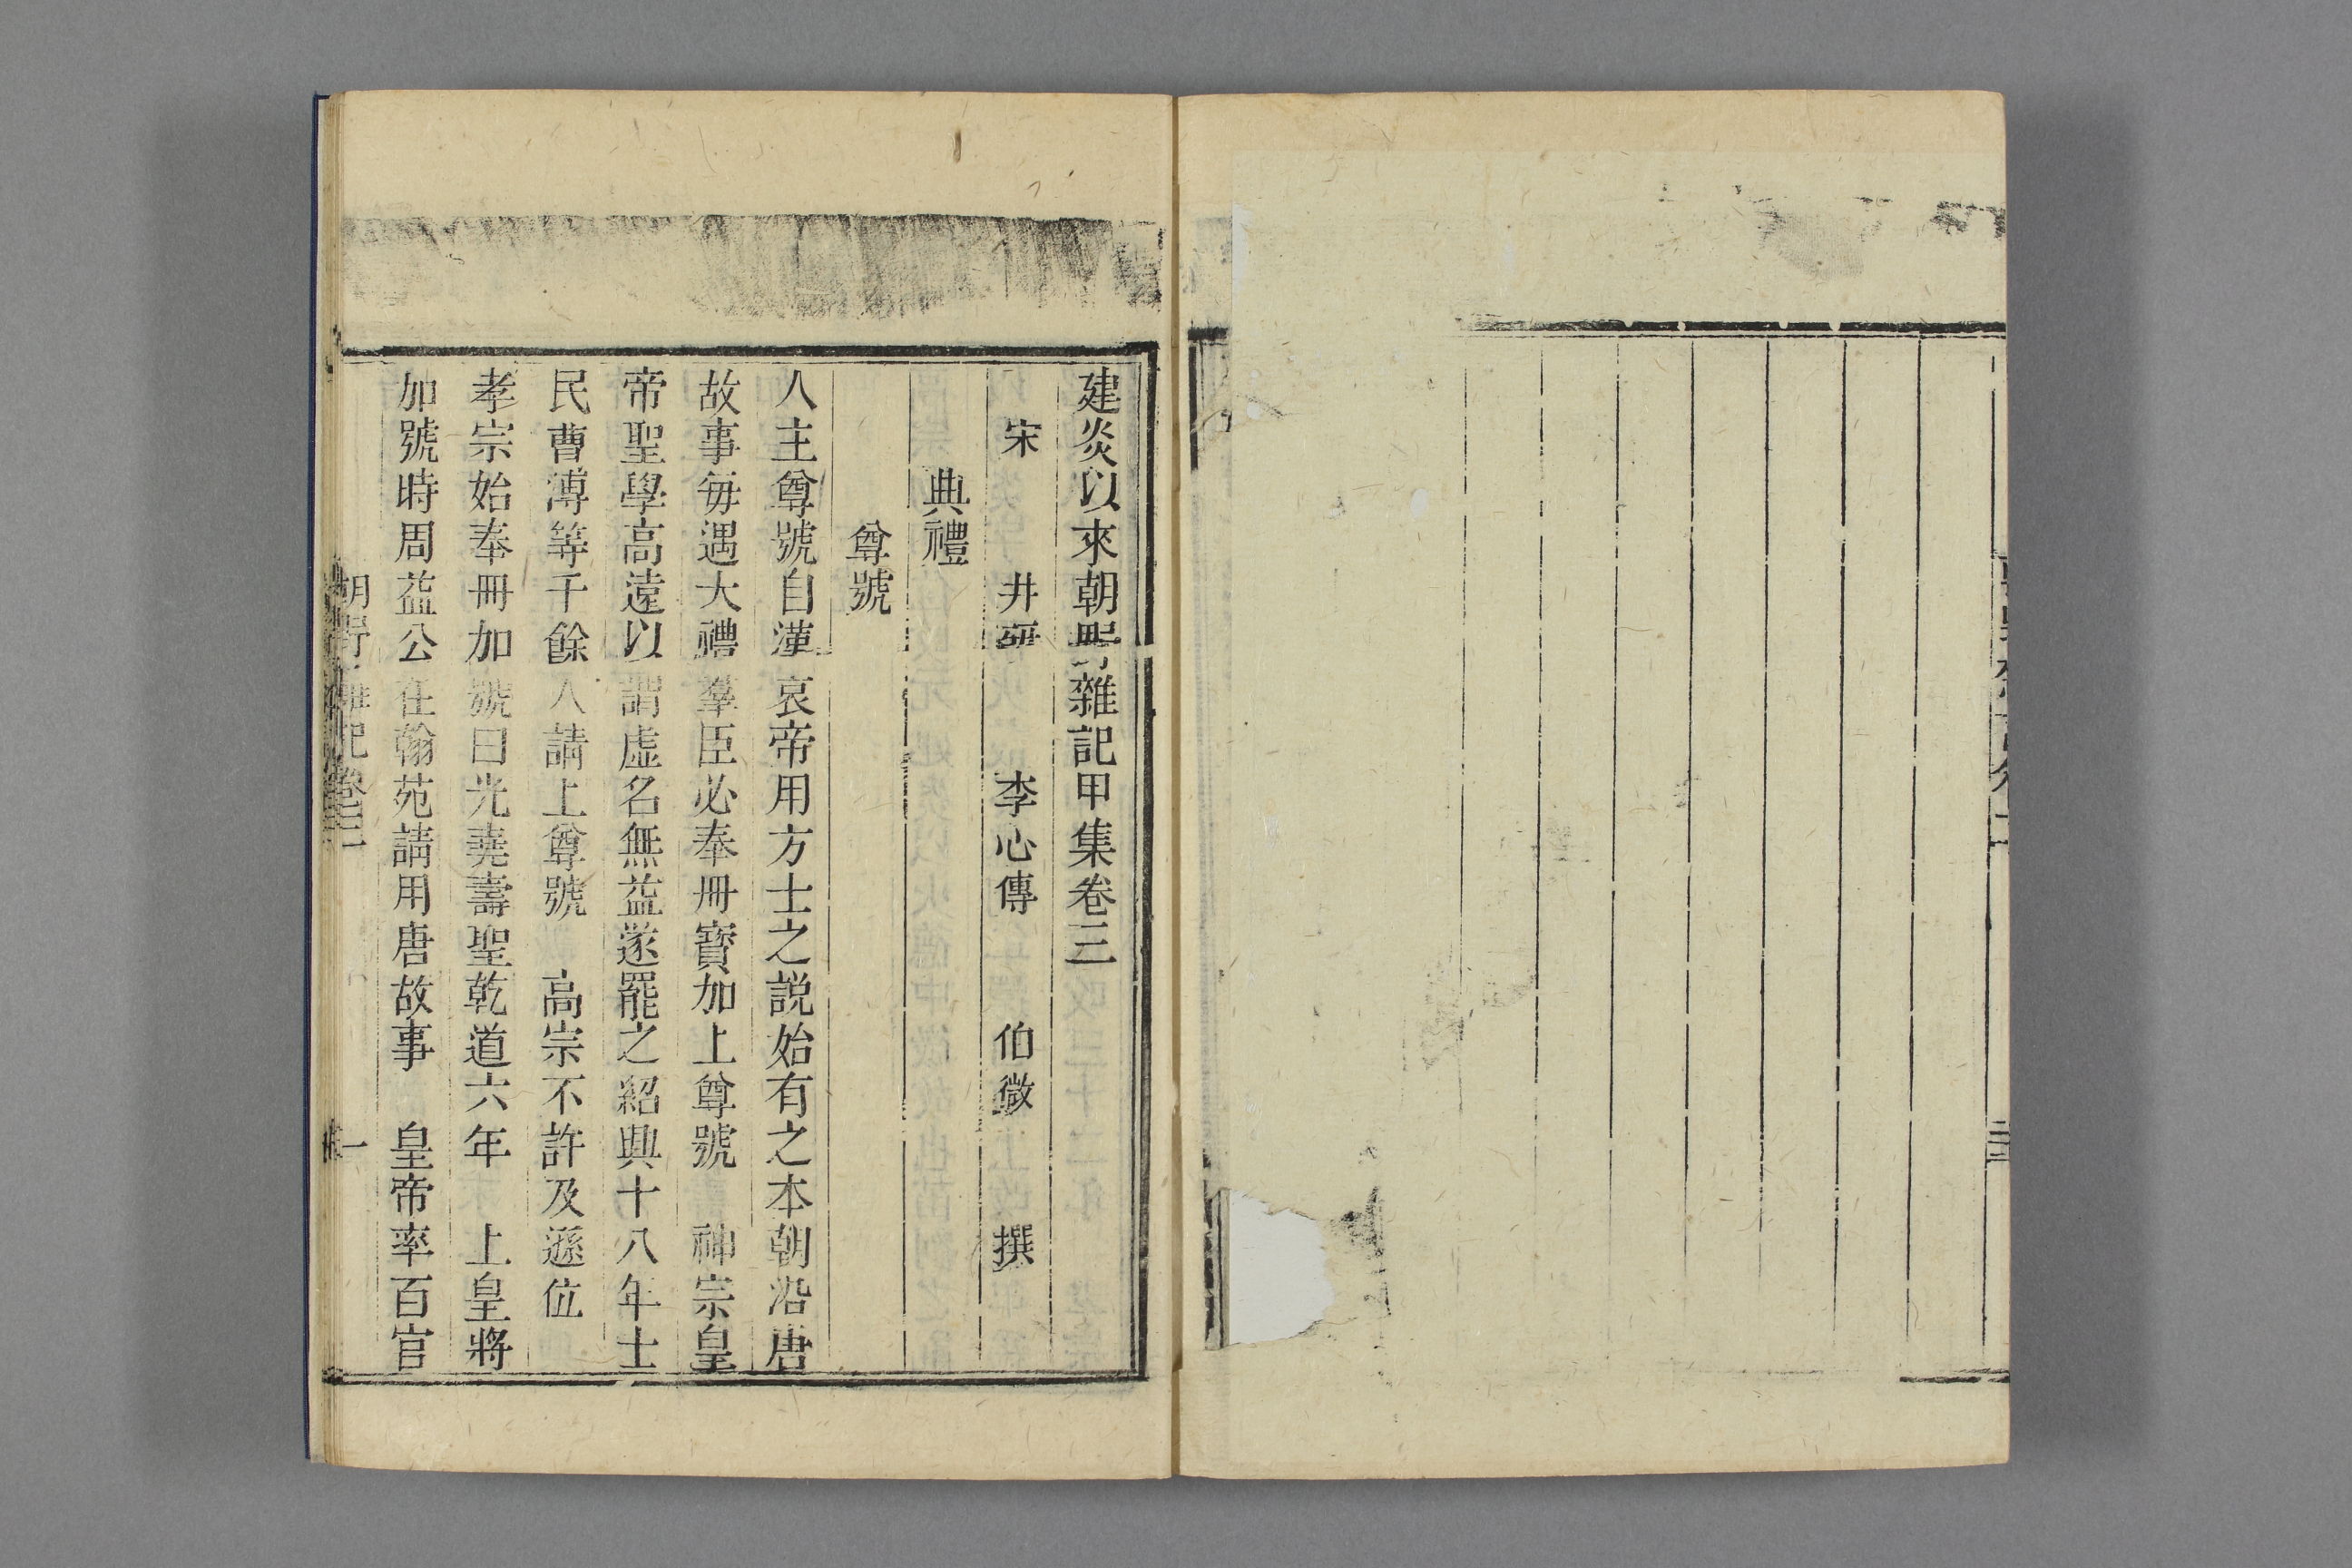 建炎以來朝野雜記甲集卷三
宋 井研 李心傳 伯微 撰
典禮
尊號
人主尊號自漢哀帝用方士之説始有之本朝沿唐
故事毎遇大禮羣臣必奉冊寳加上尊號 神宗皇
帝聖學高遠以謂虚名無益遂罷之紹興十八年士
民曹溥等千餘人請上尊號 高宗不許及遜位
孝宗始奉冊加號曰光堯壽聖乾道六年 上皇將
加號時周益公在翰苑請用唐故事 皇帝率百官
朝野雜記卷三 一